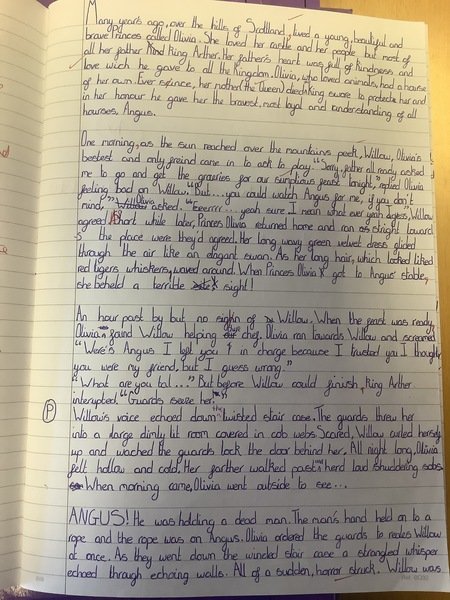 Many years ago, over the hills of Scotland, lived a young, beautiful and
brave Princes called Olivia. She loved her castle and her people but most of
all her father King King Arther. Her father's heart was full of kindness and
love wich he gave to all the Kingdom. Olivia, who loved animals, had a horse
of her own. Ever scince, her mother (the Queen) died King swore to protecte her and
in her honour he gave her the bravest, most loyal and understanding of all
hourses, Angus.
One morning, as the sun reached over the mountains peek, Willow, Olivia's
bestest and only freind came in to ask to play. "Sorry, father already asked
me to go and get the groceries for our sumptious feast tonight, replied Olivia
feeling bad on Willow. "But... you could watch Angus for me, if you don't
mind," Willow Olivia asked. "Eeerrrr... yeah sure. I mean what ever yeah agless, Willow
agreed. Short while later, Princes Olivia returned home and ran as straight toward
the place were they'd agreed. Her long wavy green velvet dress glided
through the air like an elegant swan. As her long hair, which looked liked
red tigers whiskers, waved around. When Princes Olivia got to Angus' stable,
she beheld a terrible sight!
An hour past by but no sign of Willow. When the feast was ready,
Olivia found Willow helping chef. Olivia ran towards Willow and screamed
"Were's Angus I left you in charge because I trusted you I thought
you were my friend, but I guess wrong."
"What are you tal..." But before Willow could finish, King Arther
interupted. "Guards seize her."
P
Willow's voice echoed down the twisted stair case. The guards threw her
into a large dimly lit room covered in cob webs. Scared, Willow curled herself
up and wached the guards lock the door behind her. All night long, Olivia
felt hollow and cold. Her farther walked past and herd loud shuddering sobs.
When morning came, Olivia went outside to see...
ANGUS! He was holding a dead man. The man's hand held on to a
rope and the rope was on Angus. Olivia ordered the guards to reales Willow
at once. As they went down the winded stair case a strangled whisper
echoed through echoing walls. All of a sudden, horror struck. Willow was